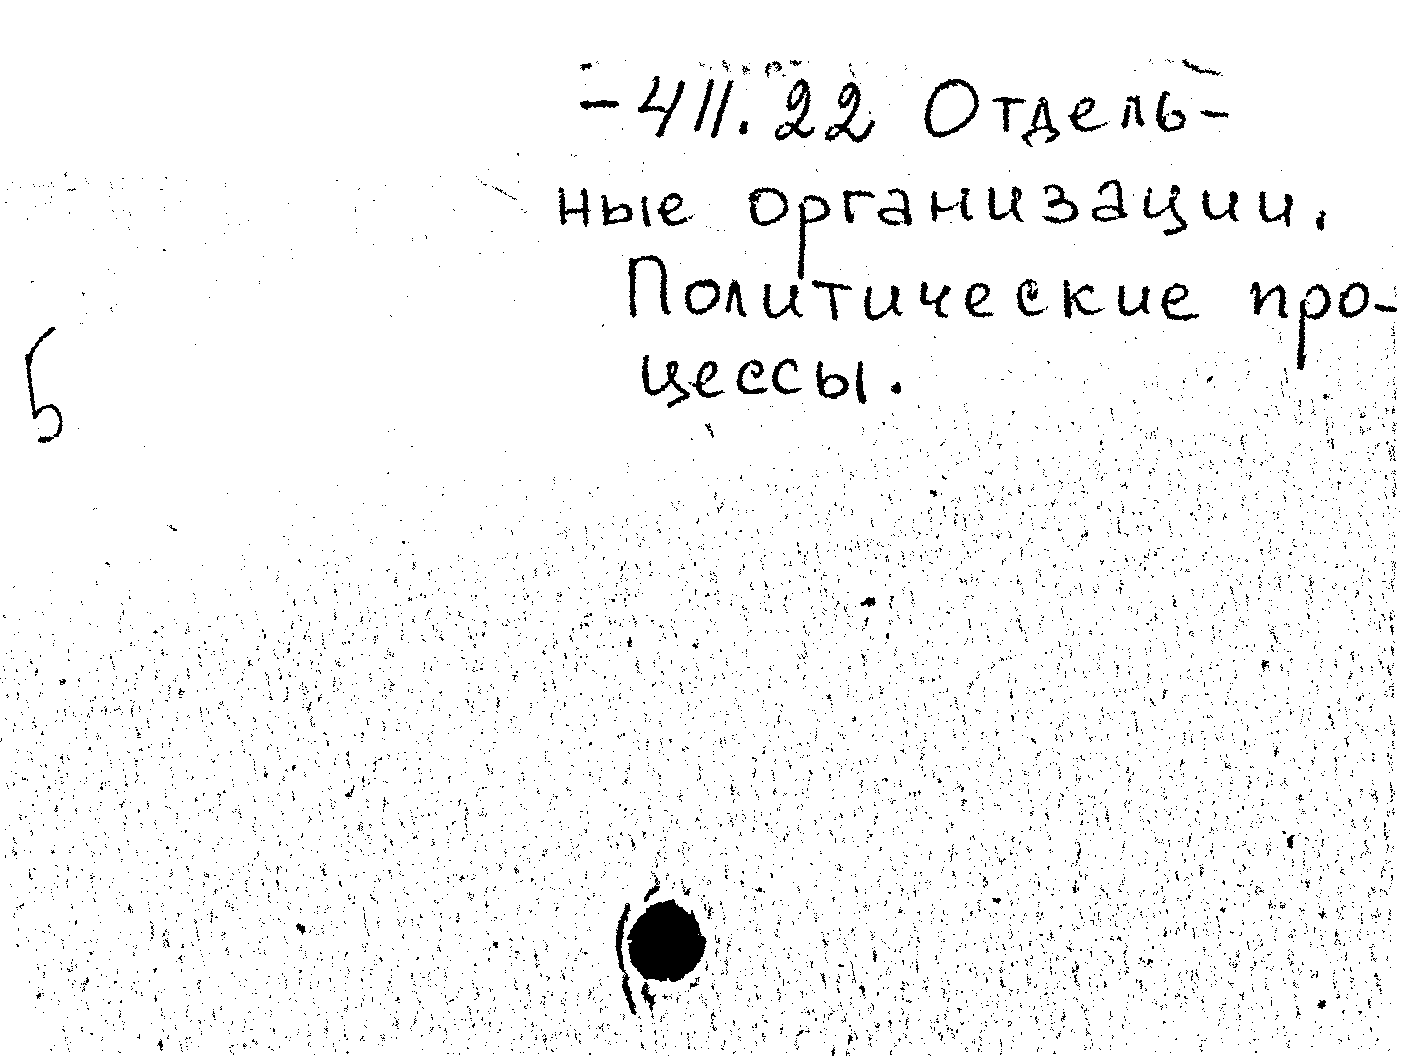 -411.22 Отдель-
ные организации.
Политические про-
цессы.
Б